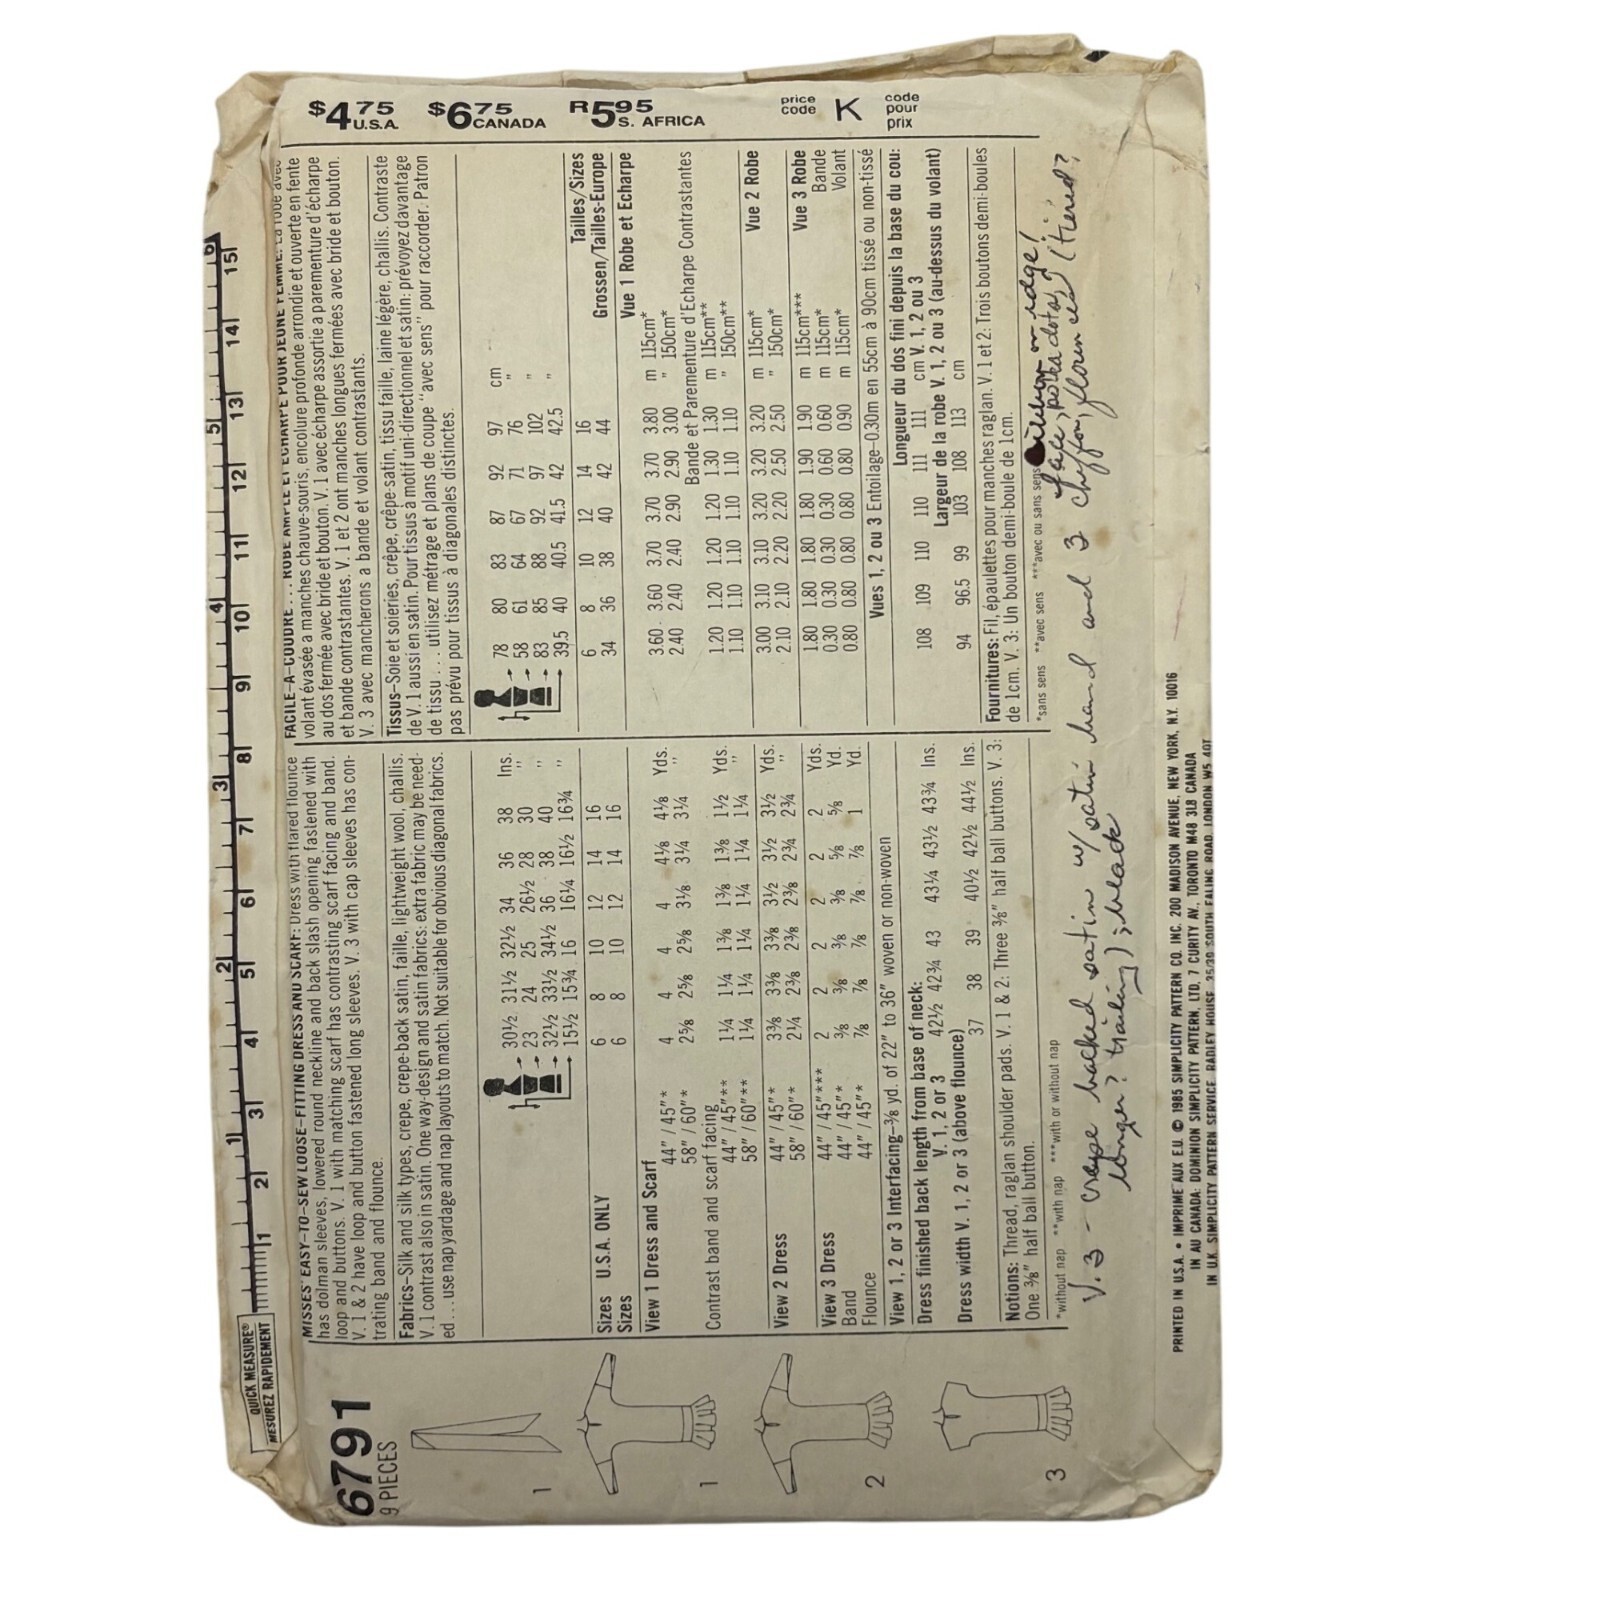 QUICK MEASURE®
MESUREZ RAPIDEMENT
1 2 3 4 5 6 7 8 9 10 11 12 13 14 15
1 2 3 4 5 6
6791
9 PIECES
1
1
2
3
MISSES' EASY-TO-SEW LOOSE-FITTING DRESS AND SCARF: Dress with flared flounce
has dolman sleeves, lowered round neckline and back slash opening fastened with
loop and buttons. V. 1 with matching scarf has contrasting scarf facing and band.
V. 1 & 2 have loop and button fastened long sleeves. V. 3 with cap sleeves has con-
trating band and flounce.
Fabrics–Silk and silk types, crepe, crepe-back satin, faille, lightweight wool, challis.
V. 1 contrast also in satin. One way-design and satin fabrics: extra fabric may be need-
ed . . . use nap yardage and nap layouts to match. Not suitable for obvious diagonal fabrics.
30½ 31½ 32½ 34 36 38 Ins.
23 24 25 26½ 28 30 "
32½ 33½ 34½ 36 38 40 "
15½ 15¾ 16 16¼ 16½ 16¾ "
Sizes U.S.A. ONLY 6 8 10 12 14 16
Sizes 6 8 10 12 14 16
View 1 Dress and Scarf
44" / 45"* 4 4 4 4 4⅛ 4⅛ Yds.
58" / 60"* 2⅝ 2⅝ 2⅝ 3⅛ 3¼ 3¼ "
Contrast band and scarf facing
44" / 45"** 1¼ 1¼ 1⅜ 1⅜ 1⅜ 1½ Yds.
58" / 60"** 1¼ 1¼ 1¼ 1¼ 1¼ 1¼ "
View 2 Dress 44" / 45"* 3⅜ 3⅜ 3⅜ 3½ 3½ 3½ Yds.
58" / 60"* 2¼ 2⅜ 2⅜ 2⅜ 2¾ 2¾ "
View 3 Dress 44" / 45"*** 2 2 2 2 2 2 Yds.
Band 44" / 45"* ⅜ ⅜ ⅜ ⅜ ⅝ ⅝ Yd.
Flounce 44" / 45"* ⅞ ⅞ ⅞ ⅞ ⅞ 1 Yd.
View 1, 2 or 3 Interfacing–⅜ yd. of 22" to 36" woven or non-woven
Dress finished back length from base of neck:
V. 1, 2 or 3 42½ 42¾ 43 43¼ 43½ 43¾ Ins.
Dress width V. 1, 2 or 3 (above flounce)
37 38 39 40½ 42½ 44½ Ins.
Notions: Thread, raglan shoulder pads. V. 1 & 2: Three ⅜" half ball buttons. V. 3:
One ⅜" half ball button.
*without nap **with nap ***with or without nap
$4.75 U.S.A. $6.75 CANADA R5.95 S. AFRICA price code K code pour prix
FACILE-A-COUDRE . . . ROBE AMPLE ET ECHARPE POUR JEUNE FEMME: La robe avec
volant évasée a manches chauve-souris, encolure profonde arrondie et ouverte en fente
au dos fermée avec bride et bouton. V. 1 avec écharpe assortie a parementure d'écharpe
et bande contrastantes. V. 1 et 2 ont manches longues fermées avec bride et bouton.
V. 3 avec mancherons a bande et volant contrastants.
Tissus–Soie et soieries, crêpe, crêpe-satin, tissu faille, laine légère, challis. Contraste
de V. 1 aussi en satin. Pour tissus à motif uni-directionnel et satin: prévoyez davantage
de tissu . . . utilisez métrage et plans de coupe "avec sens" pour raccorder. Patron
pas prévu pour tissus à diagonales distinctes.
78 80 83 87 92 97 cm
58 61 64 67 71 76 "
83 85 88 92 97 102 "
39.5 40 40.5 41.5 42 42.5 "
6 8 10 12 14 16 Tailles/Sizes
34 36 38 40 42 44 Grossen/Tailles-Europe
Vue 1 Robe et Echarpe
3.60 3.60 3.70 3.70 3.70 3.80 m 115cm*
2.40 2.40 2.40 2.90 2.90 3.00 " 150cm*
Bande et Parementure d'Echarpe Contrastantes
1.20 1.20 1.20 1.20 1.30 1.30 m 115cm**
1.10 1.10 1.10 1.10 1.10 1.10 " 150cm**
3.00 3.10 3.10 3.20 3.20 3.20 m 115cm* Vue 2 Robe
2.10 2.10 2.20 2.20 2.50 2.50 " 150cm*
1.80 1.80 1.80 1.80 1.90 1.90 m 115cm*** Vue 3 Robe
0.30 0.30 0.30 0.30 0.60 0.60 m 115cm* Bande
0.80 0.80 0.80 0.80 0.80 0.90 m 115cm* Volant
Vues 1, 2 ou 3 Entoilage–0.30m en 55cm à 90cm tissé ou non-tissé
Longueur du dos fini depuis la base du cou:
108 109 110 110 111 111 cm V. 1, 2 ou 3
Largeur de la robe V. 1, 2 ou 3 (au-dessus du volant)
94 96.5 99 103 108 113 cm
Fournitures: Fil, épaulettes pour manches raglan. V. 1 et 2: Trois boutons demi-boules
de 1cm. V. 3: Un bouton demi-boule de 1cm.
*sans sens **avec sens ***avec ou sans sens
ribbon on edge!
V. 3 - crepe backed satin w/ satin band and 3 chiffon flounces (tiered?
lace, polka dots,
longer? trailing); black
PRINTED IN U.S.A. • IMPRIME AUX E.U. © 1985 SIMPLICITY PATTERN CO. INC. 200 MADISON AVENUE, NEW YORK, N.Y. 10016
IN AU CANADA: DOMINION SIMPLICITY PATTERN, LTD, 7 CURITY AV., TORONTO M4B 3L8 CANADA
IN U.K. SIMPLICITY PATTERN SERVICE, RADLEY HOUSE, 25/39 SOUTH EALING ROAD, LONDON W5 4QT